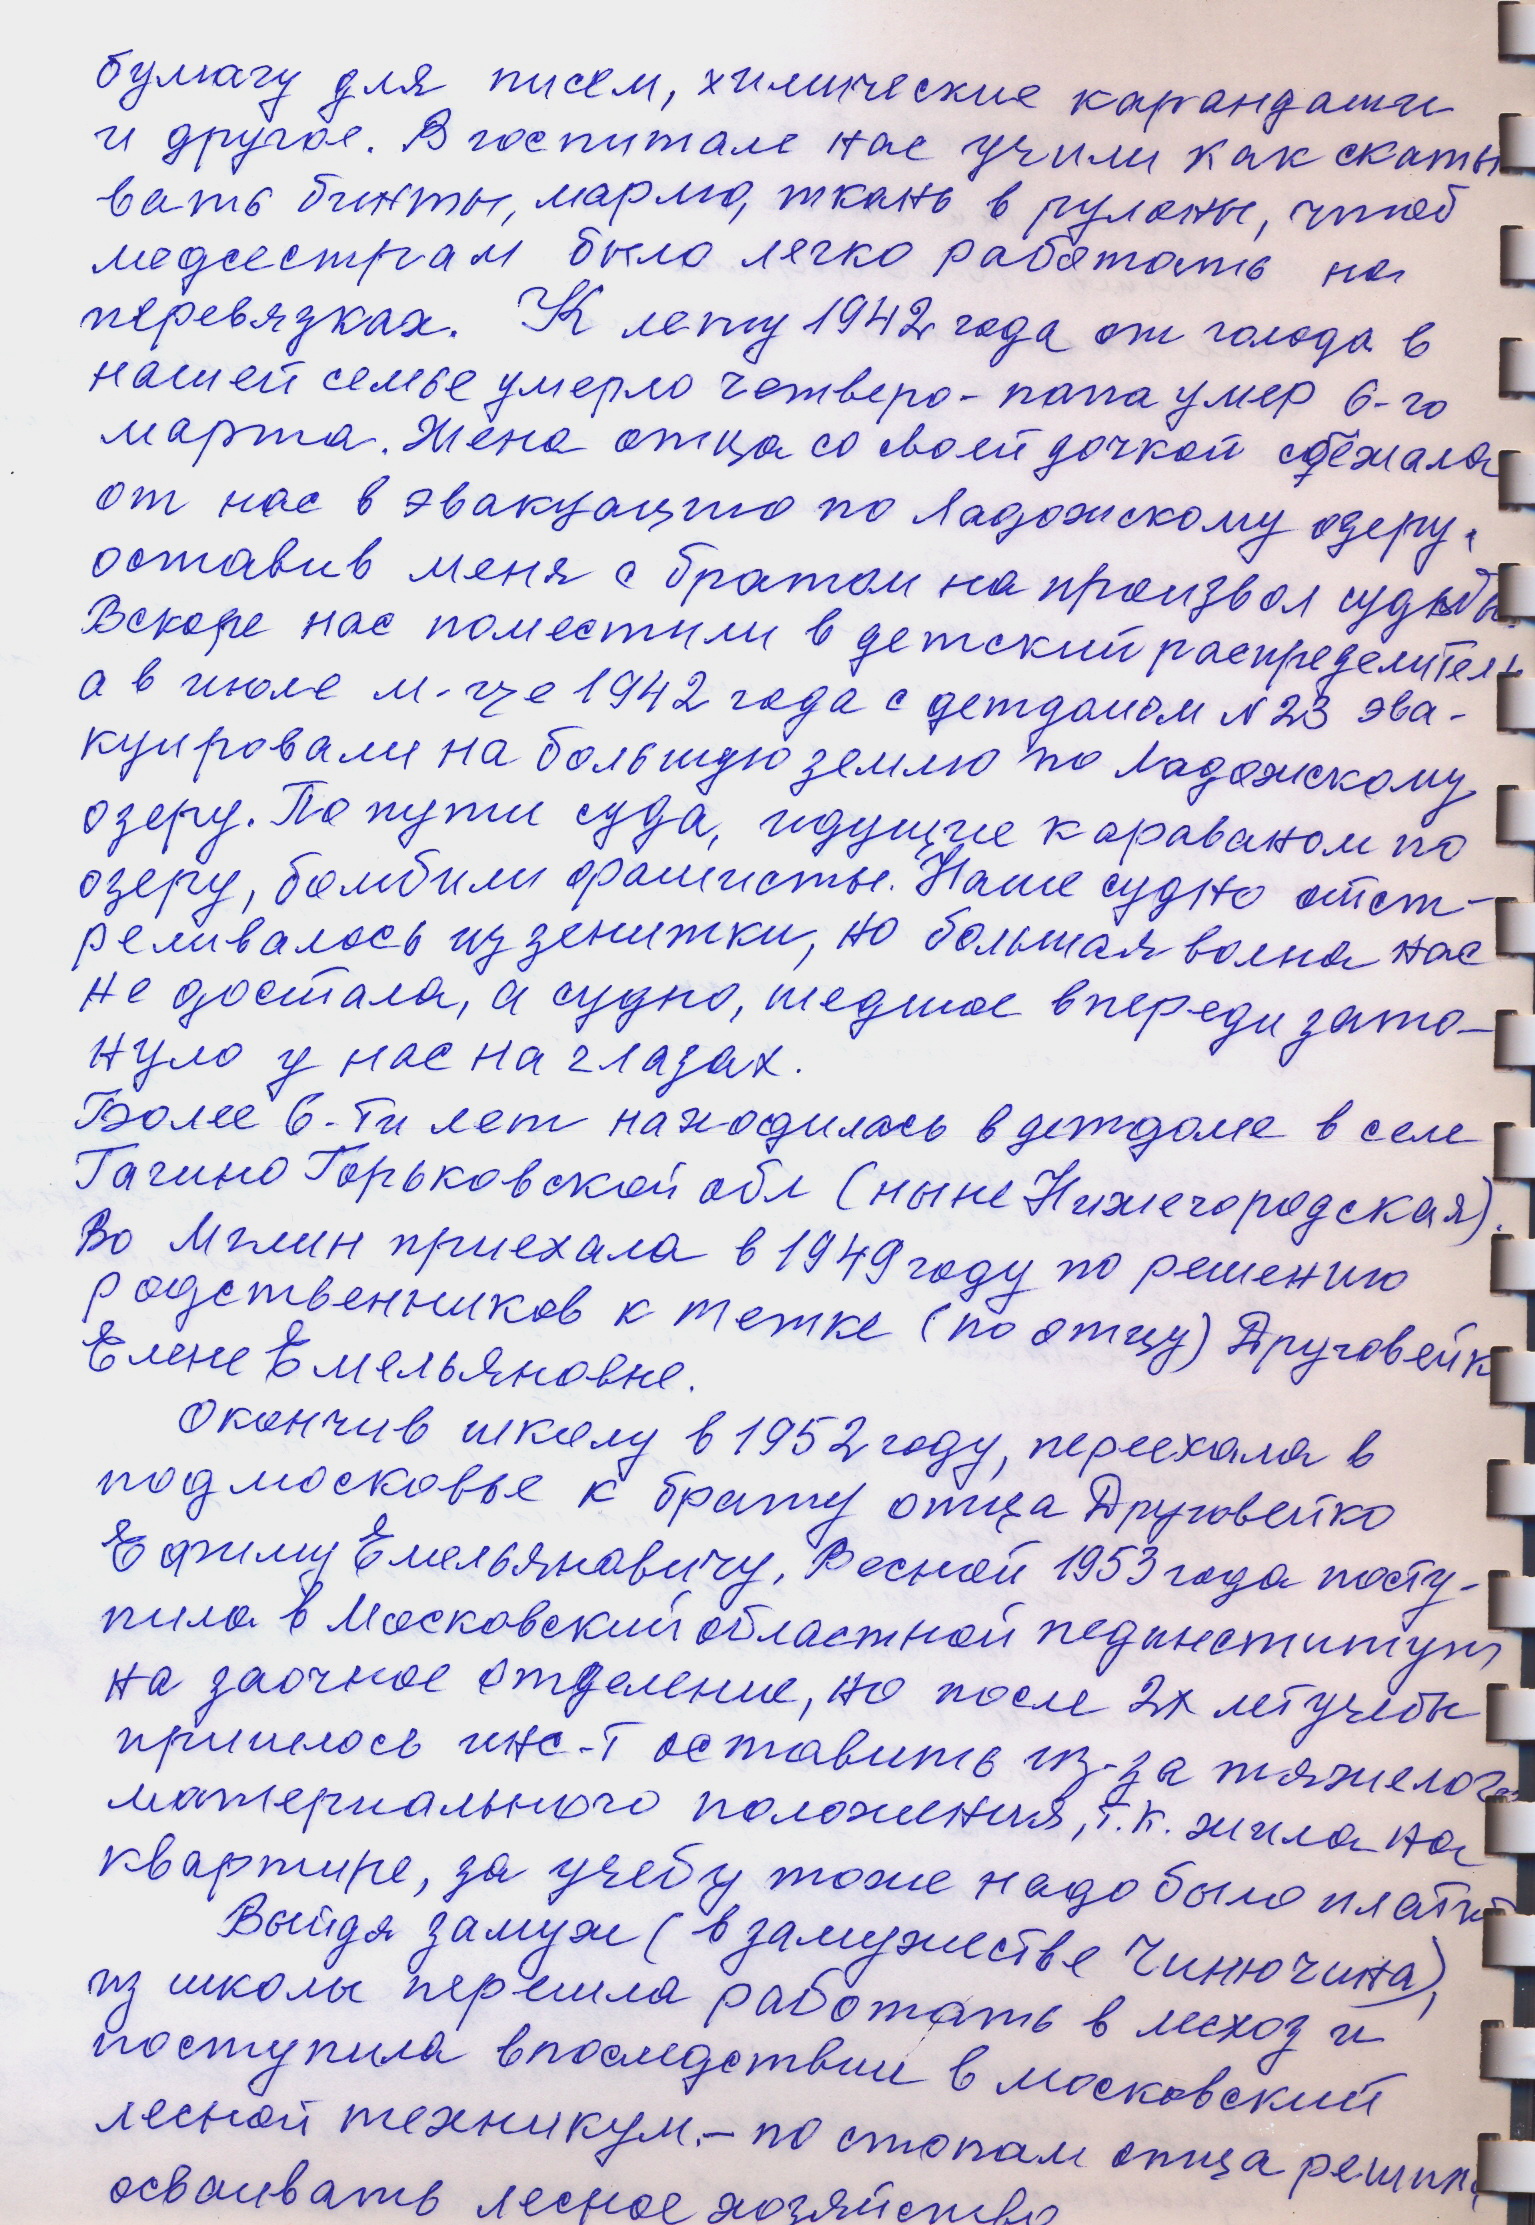 бумагу для писем, химические карандаши
и другое. В госпитале нас учили как скаты
вать бинты, марлю, ткань в рулоны, чтоб
медсестрам было легко работать на
перевязках. К лету 1942 года от голода в
нашей семье умерло четверо - папа умер 6-го
марта. Жена отца со своей дочкой сбежала
от нас в эвакуацию по Ладожскому озеру,
оставив меня с братом на произвол судьбы.
Вскоре нас поместили в детский распределитель
а в июле м-це 1942 года с детдомом №23 эва-
куировали на большую землю по Ладожскому
озеру. По пути суда, идущие караваном по
озеру, бомбили фашисты. Наше судно отст-
реливалось из зенитки, но большая волна нас
не достала, а судно, шедшее впереди зато-
нуло у нас на глазах.
Более 6-ти лет находилась в детдоме в селе
Гагино Горьковской обл (ныне Нижегородская).
Во Мглин приехала в 1949 году по решению
родственников к тетке (по отцу) Друговейк
Елене Емельяновне.
Окончив школу в 1952 году, переехала в
подмосковье к брату отца Друговейко
Ефиму Емельяновичу. Весной 1953 года посту-
пила в Московский областной пединститут
на заочное отделение, но после 2х лет учебы
пришлось инс-т оставить из-за тяжелого
материального положения, т.к. жила на
квартире, за учебу тоже надо было платит
Выйдя замуж (в замужестве Чинючина),
из школы перешла работать в лесхоз и
поступила впоследствии в московский
лесной техникум. - по стопам отца решила
осваивать лесное хозяйство